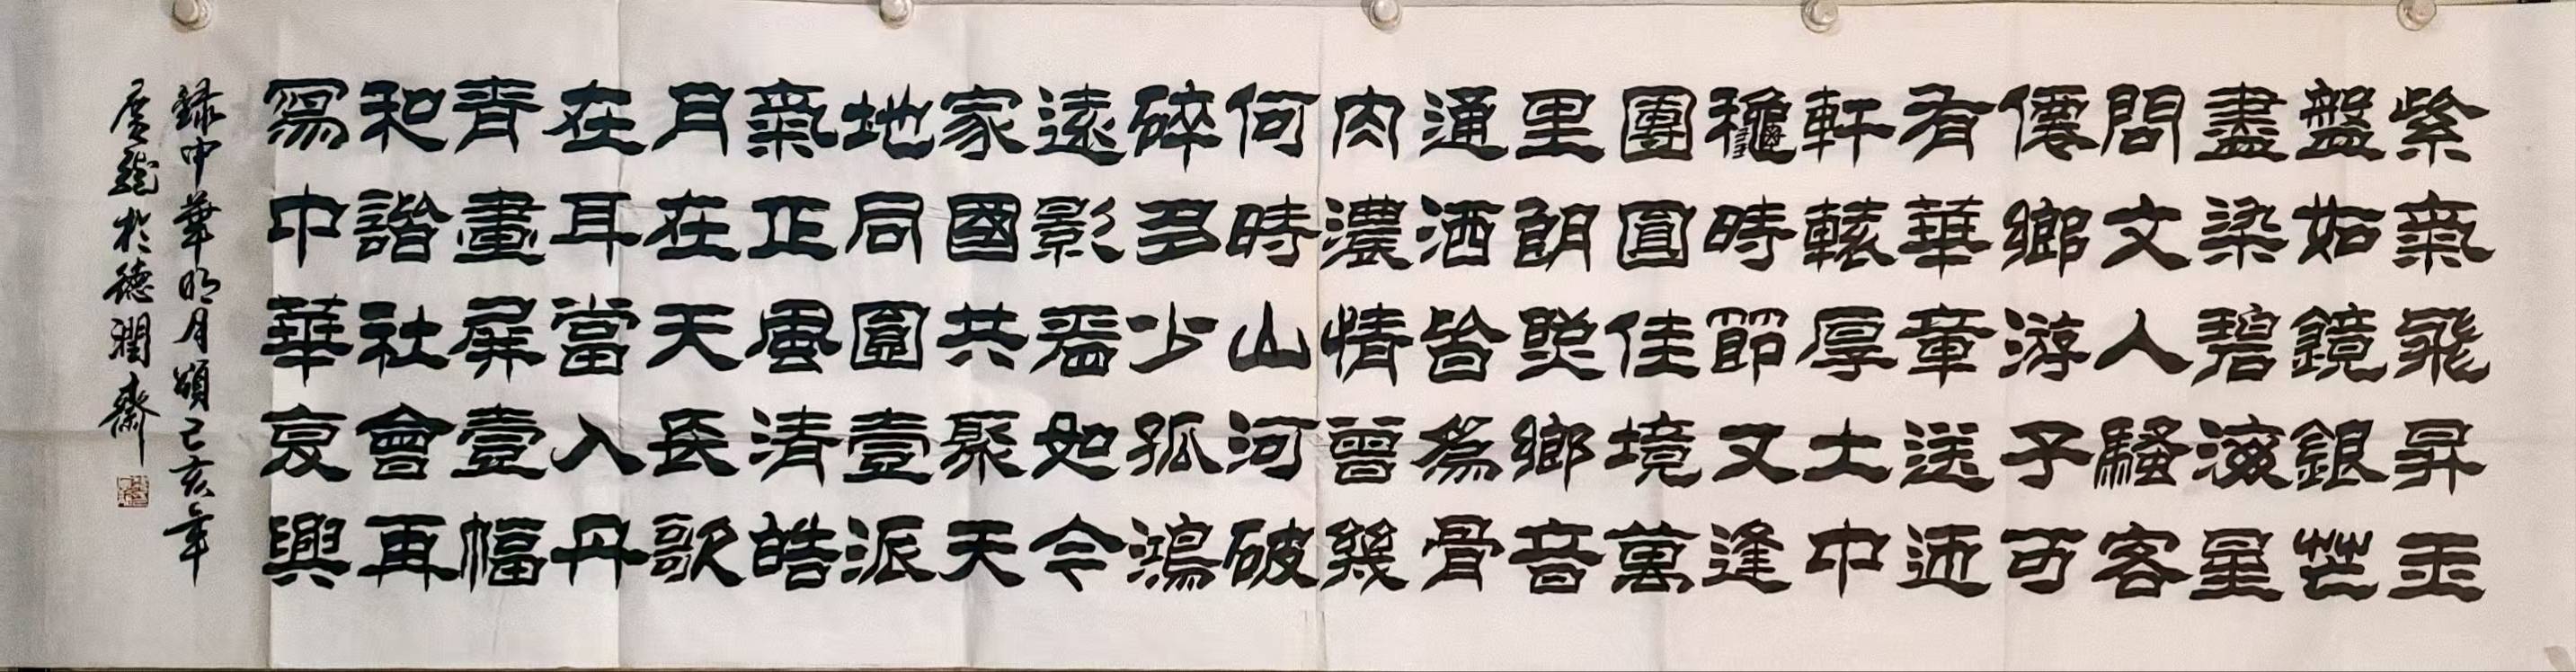 紫氣飛昇玉
盤如鏡銀芒
盡染碧海星
問文人騷客
僊鄉游子可
有華章送迎
軒轅厚土中
龝時節又逢
團圓佳境萬
里朗照鄉音
通洒皆為骨
肉濃情曾幾
何時山河破
碎多少孤鴻
遠影盖如今
家國共聚天
地同圓壹派
氣正風清皓
月在天長歌
在耳當入丹
青畫屏壹幅
和諧社會再
寫中華復興
錄中華明月頌己亥年
龍於德潤齋